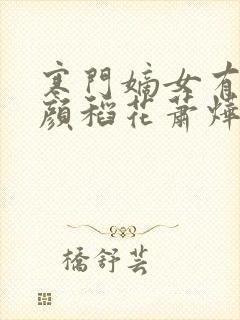 寒門嫡女有
顏稻花蕭燁
橋舒芸